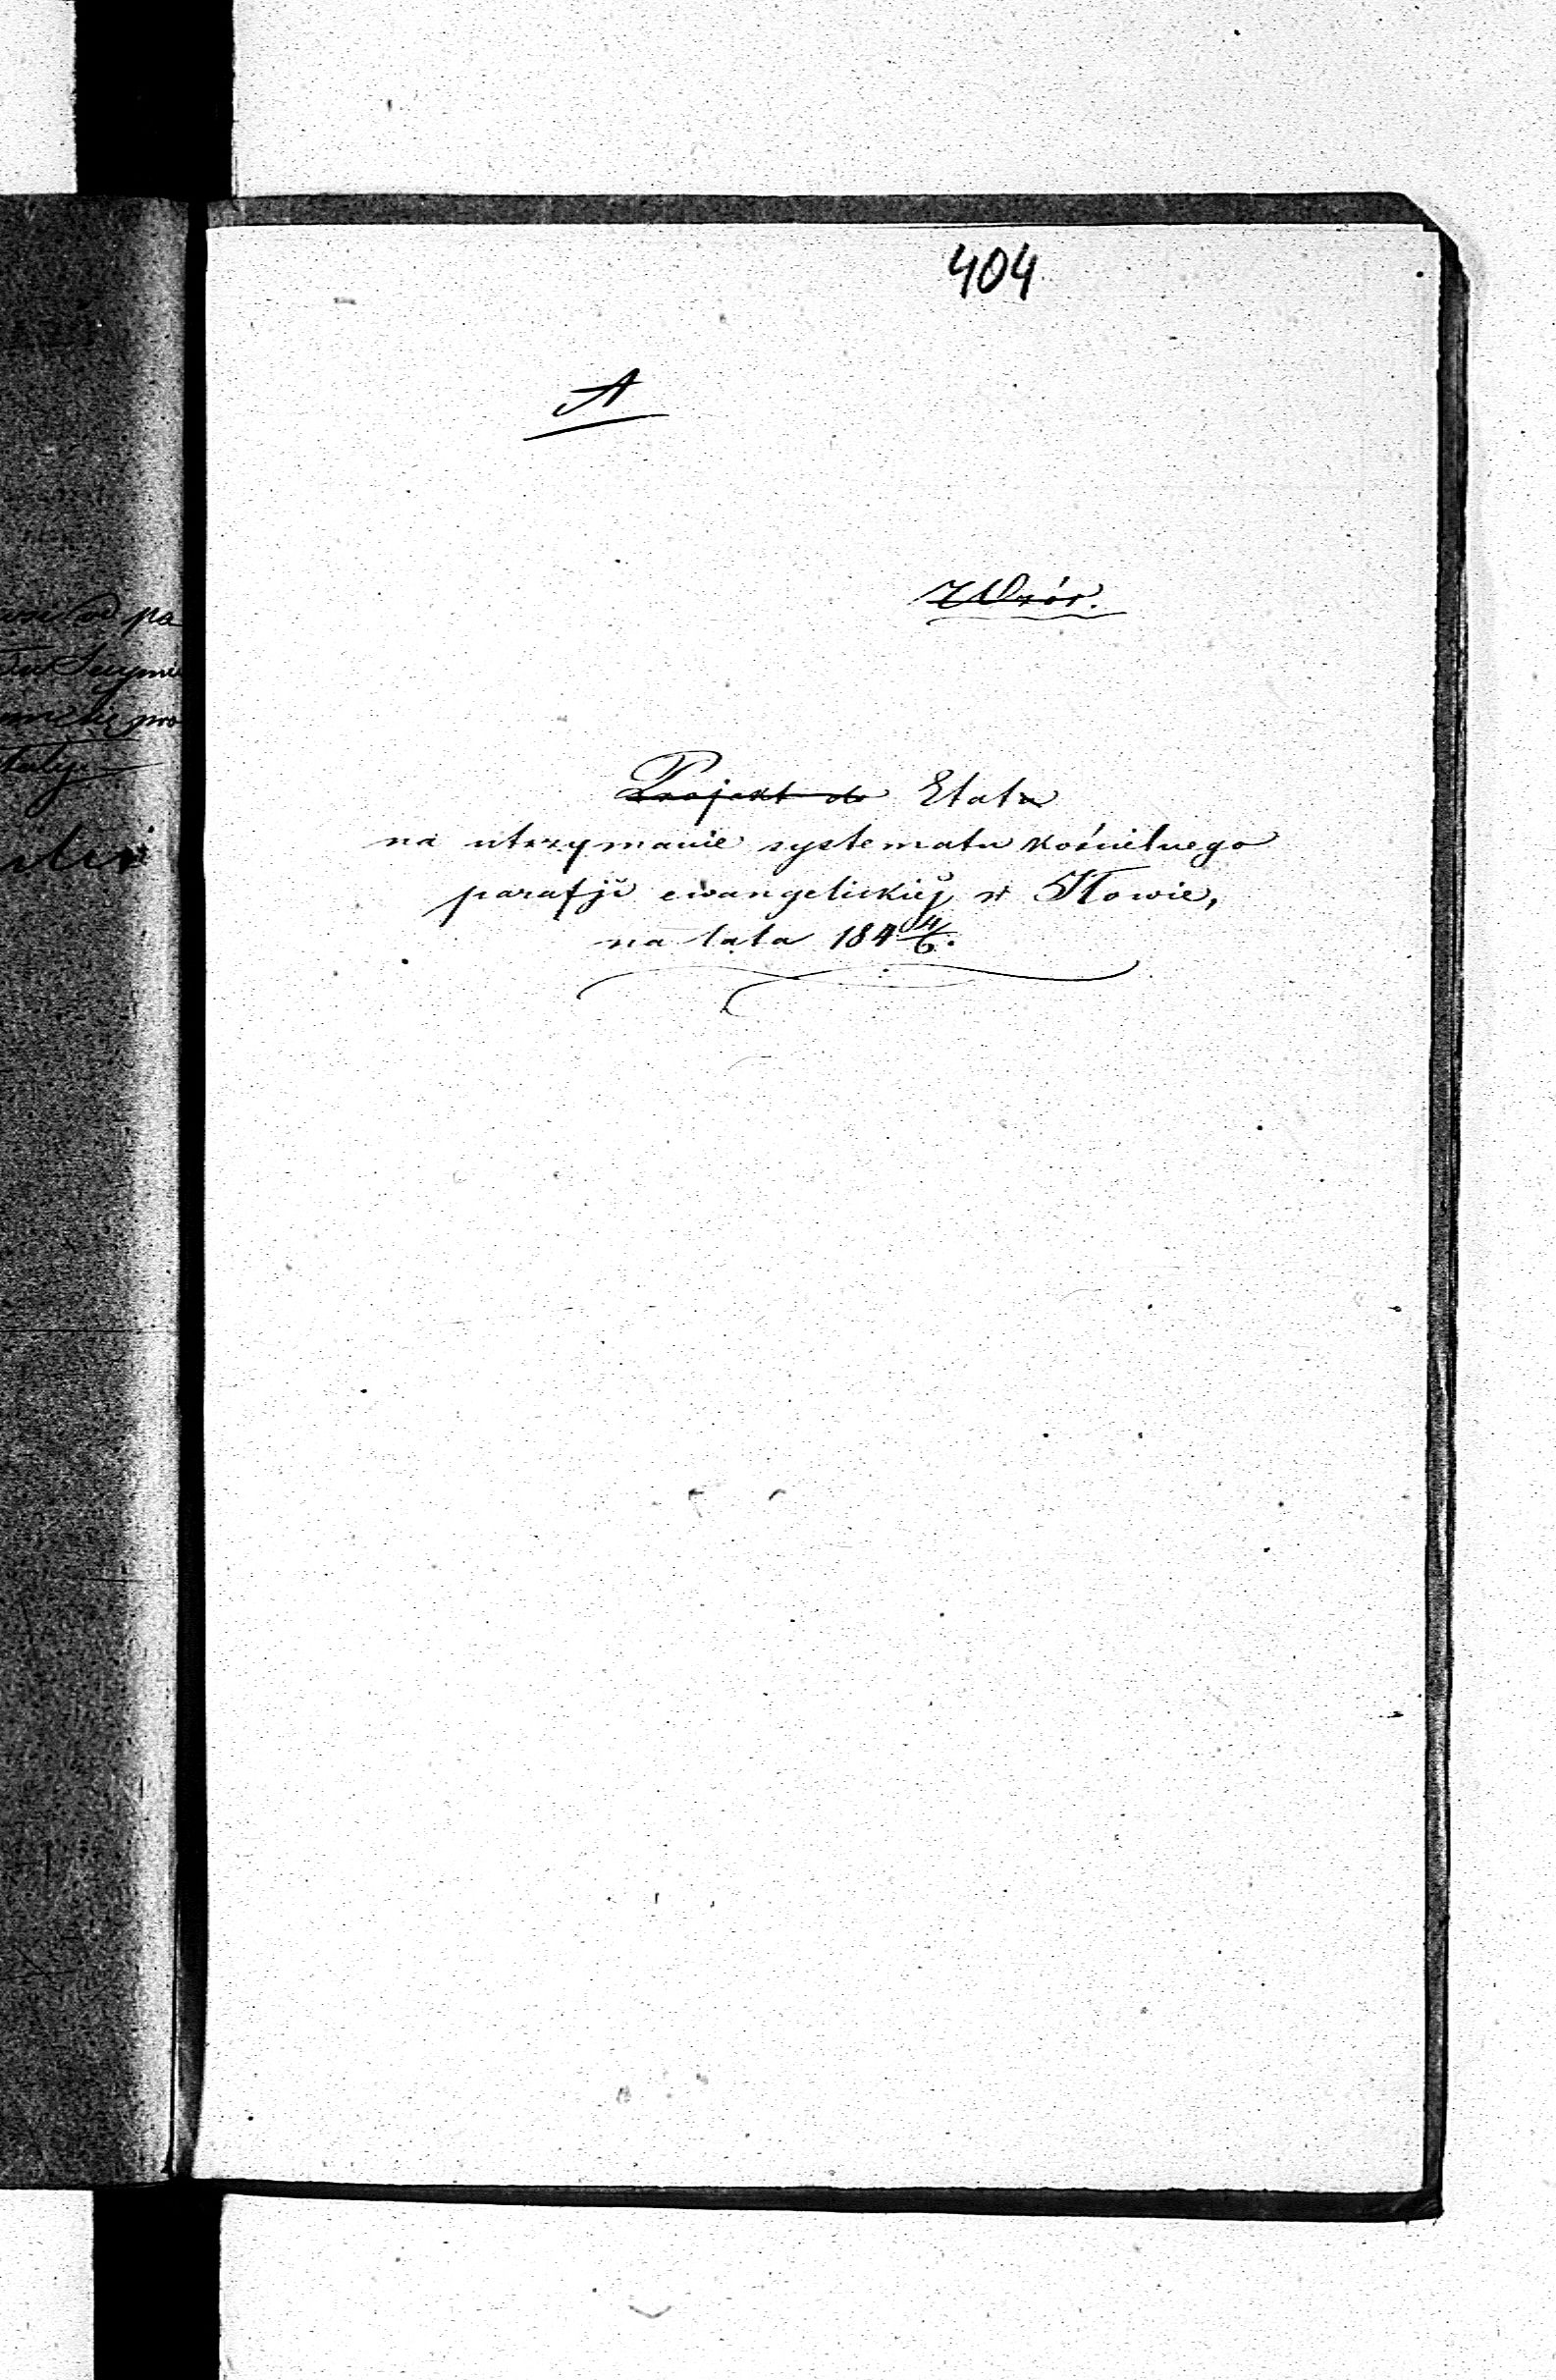 404
A
Wzór.
Projekt do Etatu
na utrzymanie systematu kościelnego
parafji ewangelickiéj w Iłowie,
na lata 184 4/6.
od pa
pro